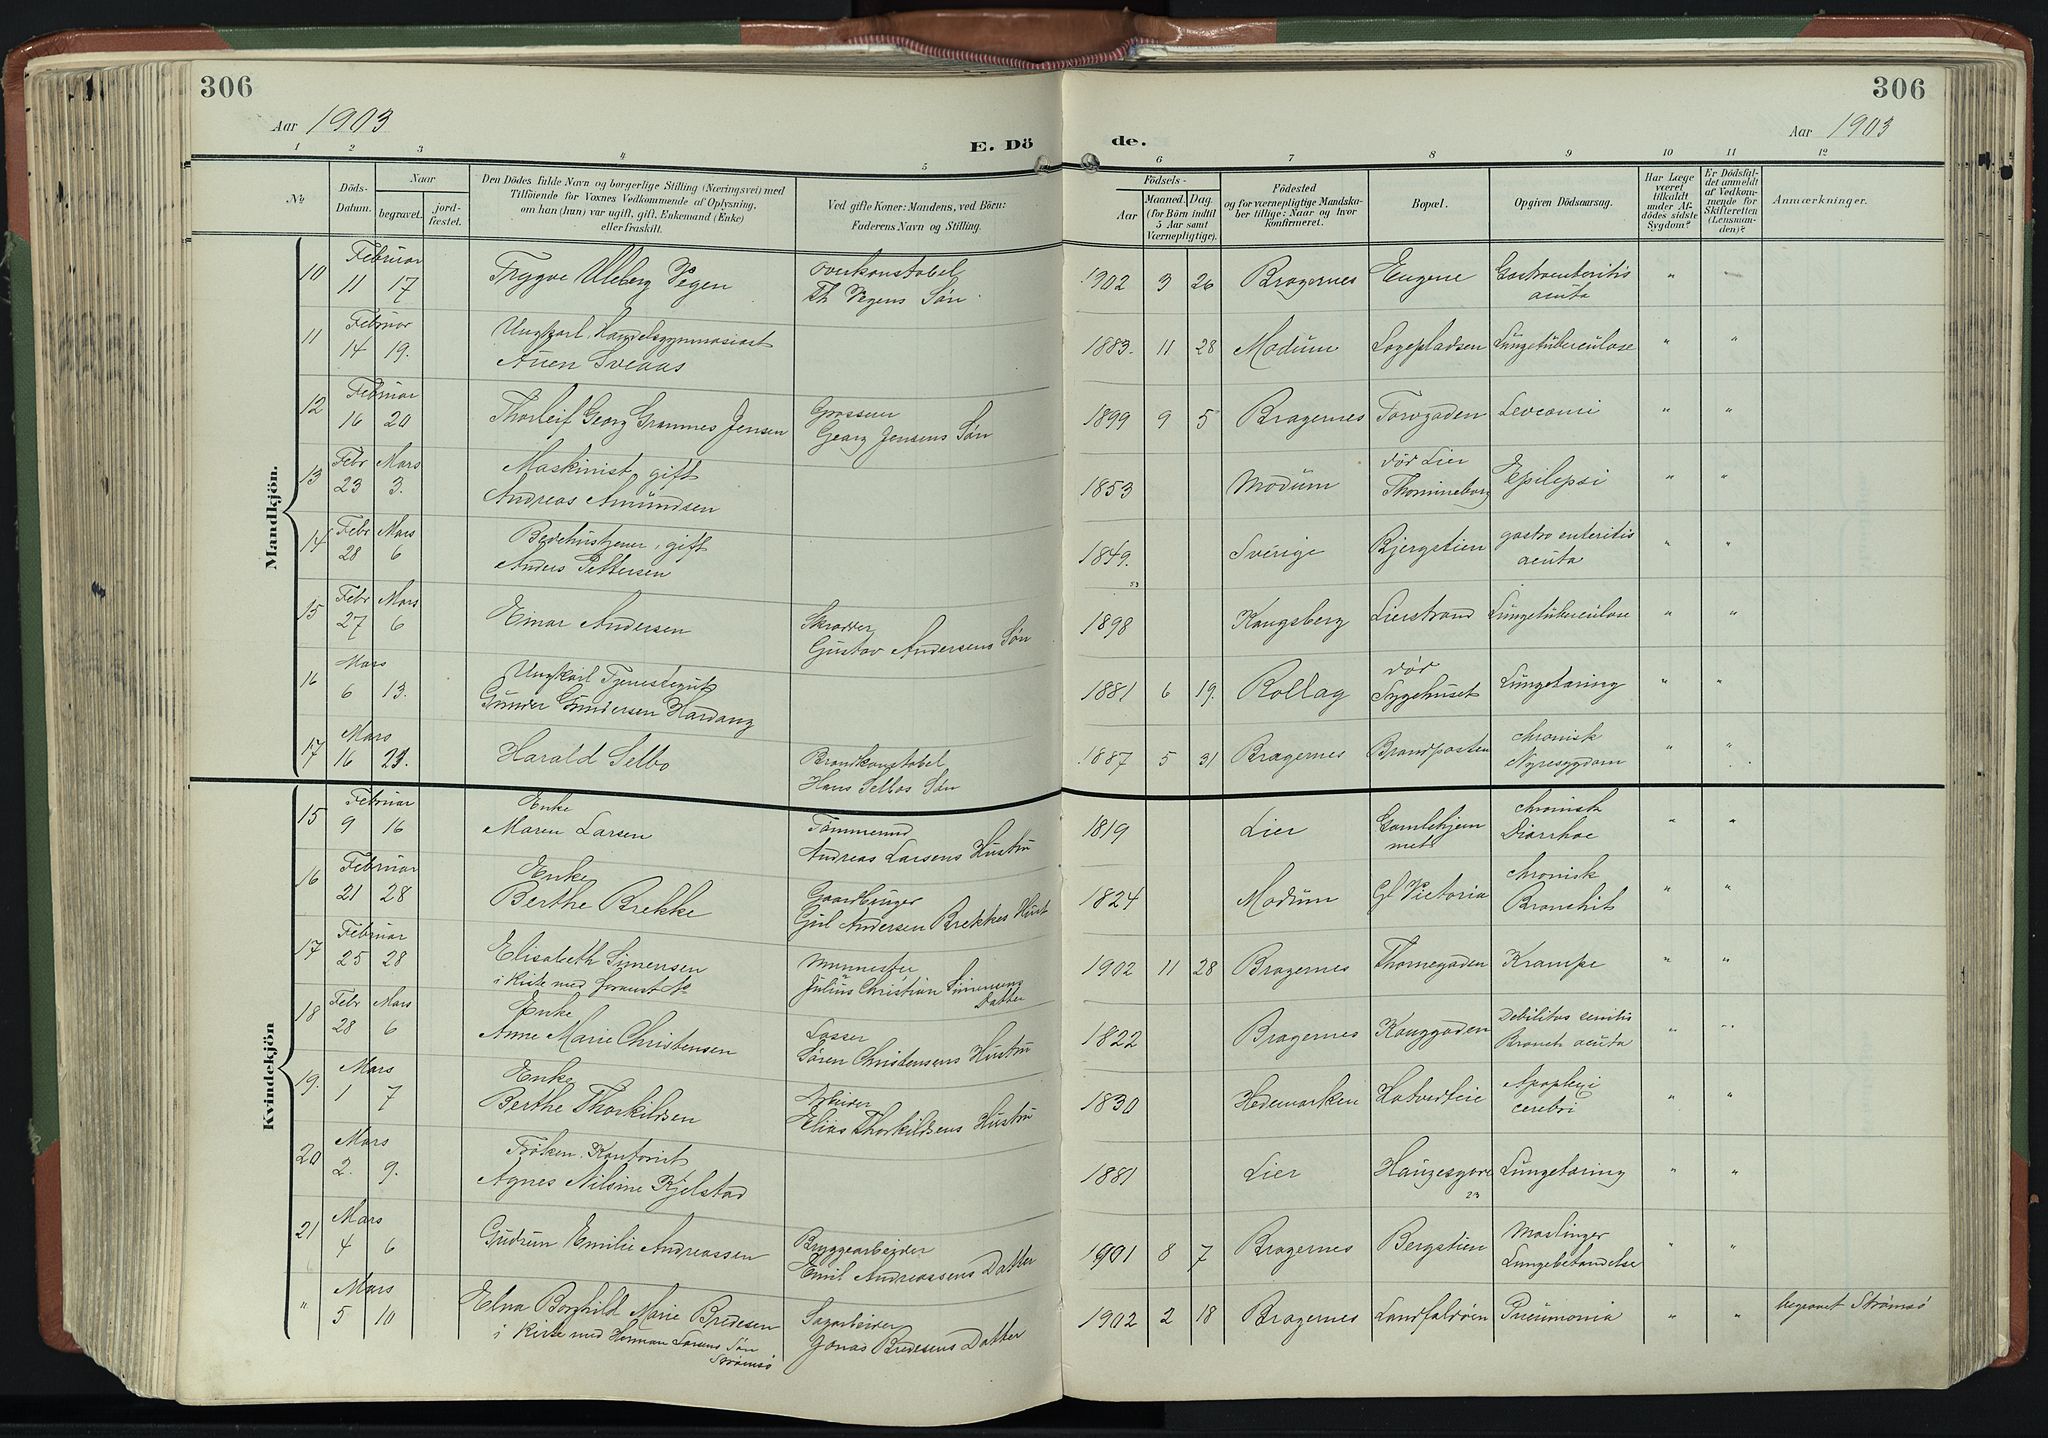 306
306
Aar 1903
Aar 1903
E. Dö
de.
1 2 3 4 5 6 7 8 9 10 11 12
No
Döds-
Datum.
Naar
begravet.
jord-
fæstet.
Den Dödes fulde Navn og borgerlige Stilling (Næringsvei) med
Tilföiende for Voxnes Vedkommende af Oplysning,
om han (hun) var ugift, gift, Enkemand (Enke)
eller fraskilt.
Ved gifte Koner: Mandens, ved Börn:
Faderens Navn og Stilling.
Födsels-
Aar
Maaned. Dag.
(for Börn indtil
5 Aar samt
Værnepligtige).
Födested
og for værnepligtige Mandska-
ber tillige: Naar og hvor
konfirmeret.
Bopæl.
Opgiven Dödsaarsag.
Har Læge
været
tilkaldt
under Af-
dödes sidste
Sygdom?
Er Dödsfal-
det anmeldt
af Vedkom-
mende for
Skifteretten
(Lensman-
den)?
Anmærkninger.
Mandkjön.
Februar Overkonstabel
10 11 17 Tryggve Uleberg Vegen Th Vegens Søn 1902 3 26 Bragernes Eugene Gastroenteritis
acuta
Februar Ungkarl, Handelsgymnasiast
11 14 19. Sveaas 1883. 11 28 Modum Løgepladsen Lungetuberculose
Februar Grosserer
12 16 20 Thorleif Georg Jensen Georg Jensens Søn 1899 9 5 Bragernes Torvgaden Levcæmi
Febr Mars Maskinist, gift død Lier
13 23 3. Andreas Amundsen 1853 Modum Thomineborg Epilepsi
Febr Mars gift gastro enteritis
14 28 6 Anders Pettersen 1849. Sverige Bjergstien acuta
53
Febr Mars Skrædder
15 27 6 Einar Andersen Gustav Andersens Søn 1898 Kongsberg Lierstrand Lungetuberculose
Mars Ungkarl Tjenestegut død
16 6 13. Gunder Gundersen Hardang 1881 6 19. Rollag Sygehuset Lungetæring
Mars Brandkonstabel chronisk
17 16 23. Harald Selbo Hans Selbos Søn 1887 5 31 Bragernes Brandposten Nyresygdom
Kvindekjön
Februar Enke Tømmermd Gamlehjem chronisk
15 9 16 Maren Larsen Andreas Larsens Hustru 1819 Lier met Diarrhoe
Februar Enke Gaardbruger chronisk
16 21 28 Berthe Brekke Andersen Brekkes Hust 1824 Modum Gl Victoria Bronchit
Februar Murmester
17 25 28 Elisabeth Simensen Julius Christian Simensens 1902 11 28 Bragernes Thornegaden Krampe
i Kiste med Datter
Febr Mars Enke Losser Debilitas senilis
18 28 6 Anne Marie Christensen Søren Christensens Hustru 1822 Bragernes Konggaden Bronch acuta
Mars Enke Arbeider Apoplexi
19. 1 7 Berthe Thorkildsen Elias Thorkildsens Hustru 1830 Hedemarken Hotvedtlie cerebri
Mars Frøken, Kontorist
20 2. 9. Agnes Nilsine Kjelstad 1881 Lier Lungetæring
23
Mars Bryggearbeider Mæslinger
21 4 6 Gudrun Emilie Andreassen Emil Andreassens Datter 1901 8 7 Bragernes Bergstien Lungebetændelse
Mars Sagarbeider begravet Strømsø
" 5 10 Elna Borghild Marie Bredesen Jonas Bredesens Datter 1902 2 18 Bragernes Landfaldøien Pneumonia
i Kiste med Herman Larsens Søn
Strømsø